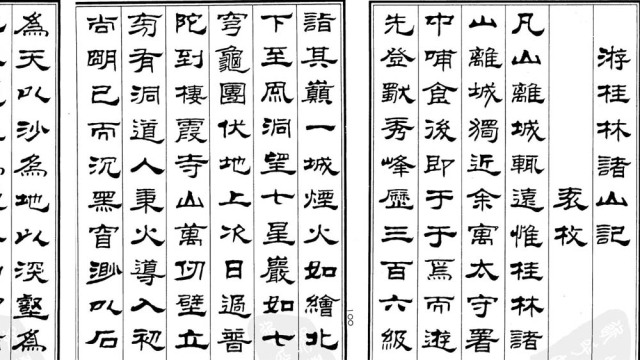 游桂林諸山記
袁枚
凡山離城輒遠惟桂林諸
山離城獨近余寓太守署
中哺食後即于于焉而遊
先登獨秀峰歷三百六級
一〇〇
詣其巔一城煙火如繪北
下至風洞望七星巖如七
穹龜團伏地上次日過普
陀到棲霞寺山萬仞壁立
旁有洞道人秉火導入初
尚明已而沉黑窅渺以石
為天以沙為地以深壑為